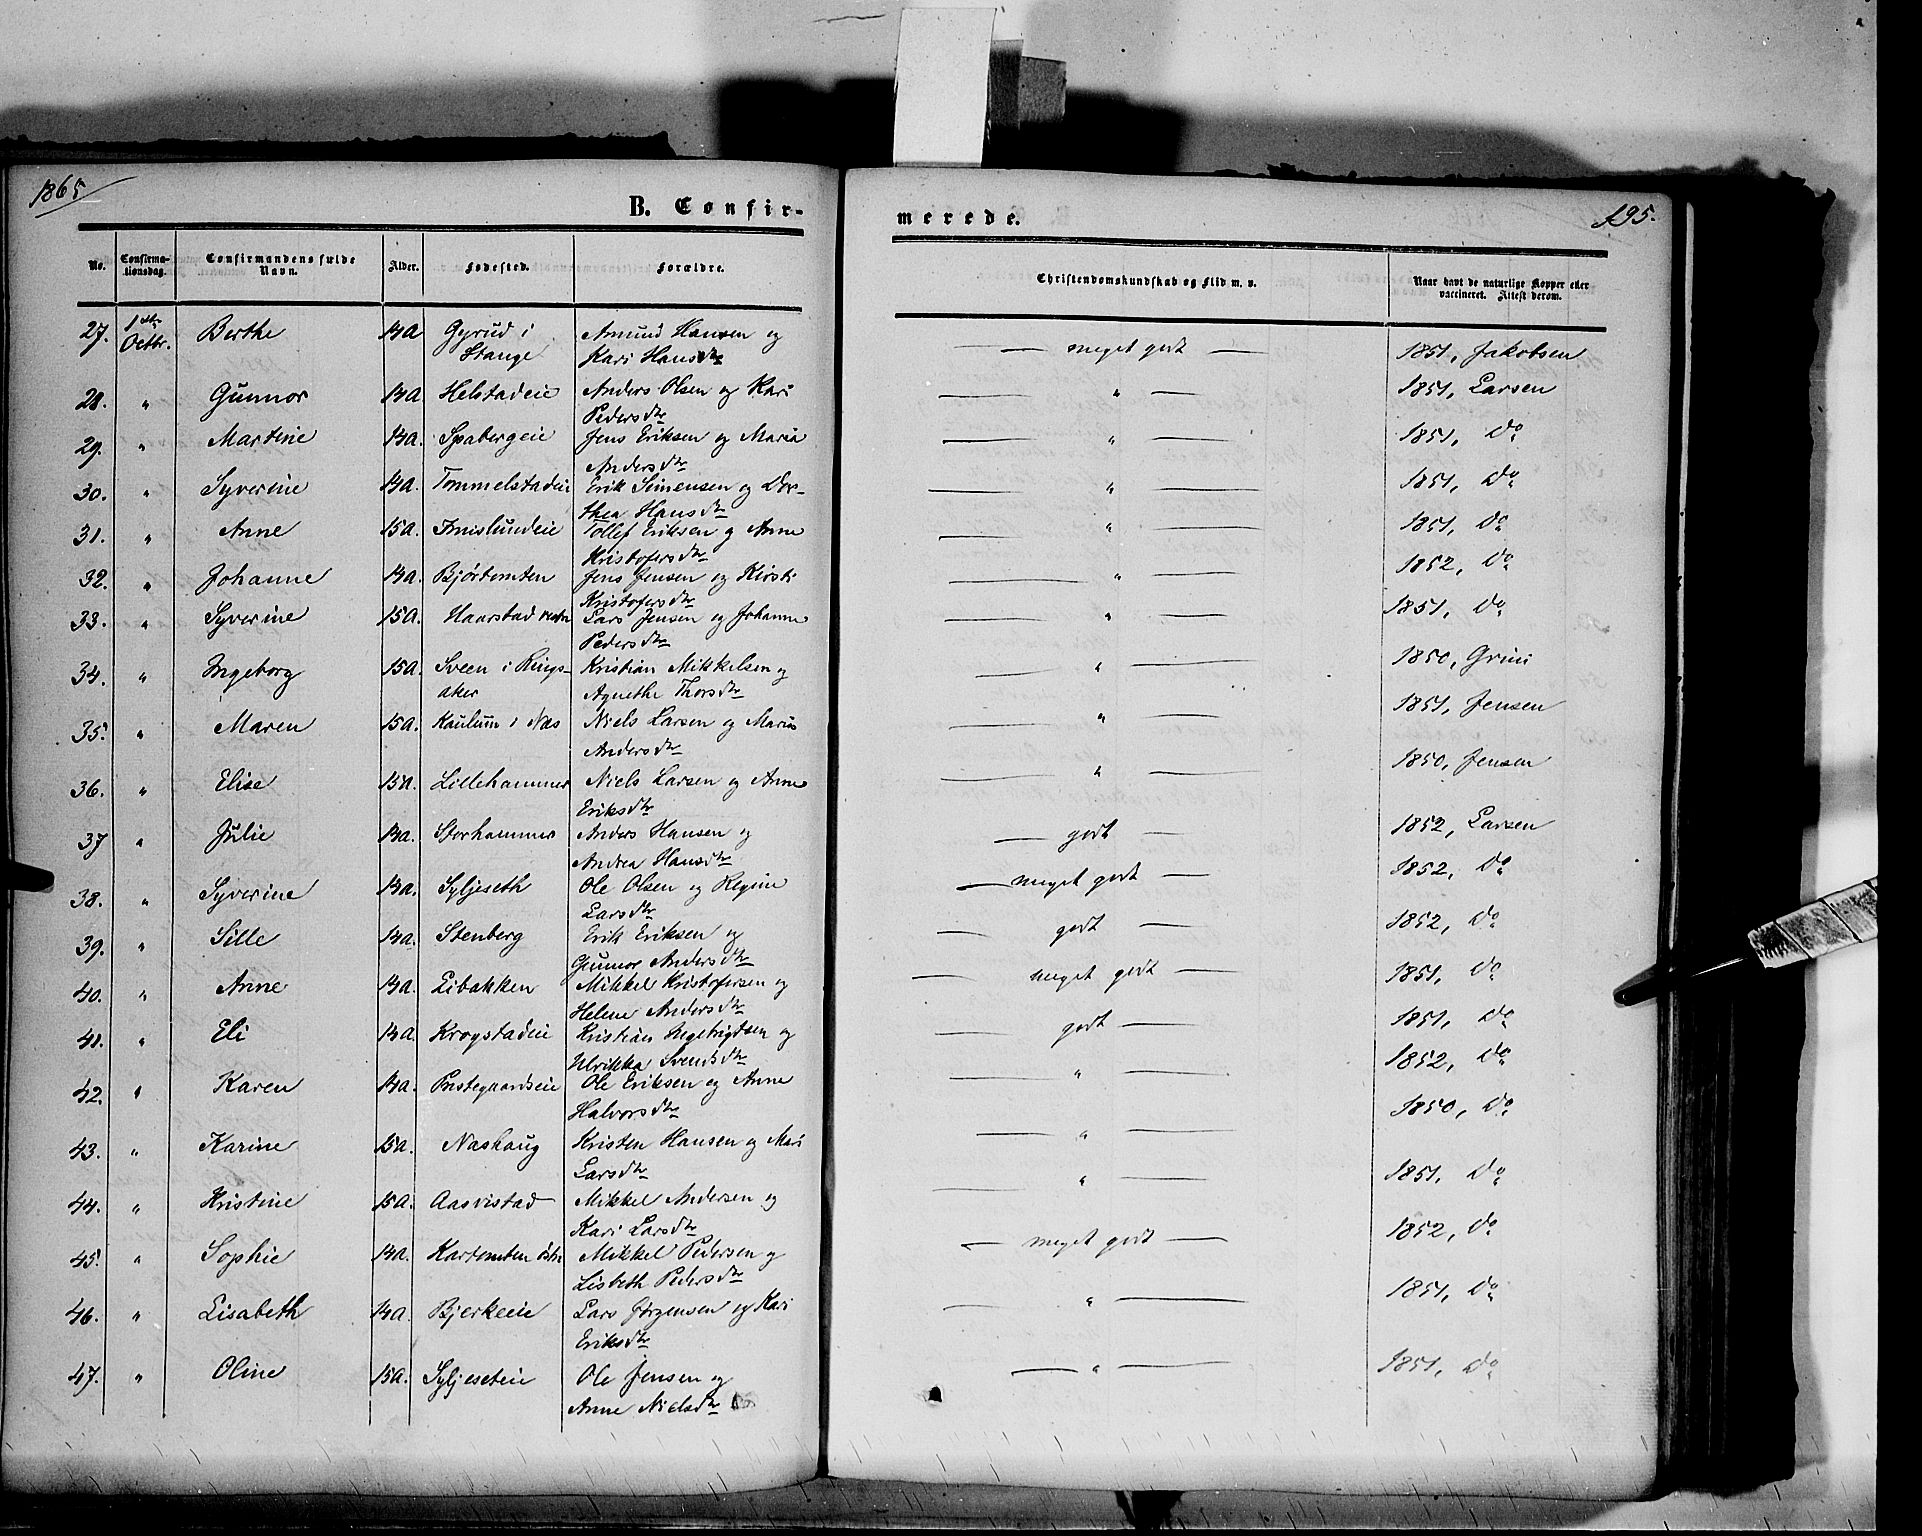 1865
B. Confir-
merede.
195.
No.
Confirma-
tionsdag.
Confirmandens fulde
Navn.
Alder.
Fødested.
Forældre.
Christendomskundskab og Flid m. v.
Naar havt de naturlige Kopper eller
vaccineret. Attest derom.
27. 1ste Octbr. Berthe 14 a Gyrud i Stange Amund Hansen og Kari Hansdtr — meget godt — 1851, Jakobsen
28. " Gunnor 14 a Helstadeie Anders Olsen og Kari Pedersdtr — " — 1851, Larsen
29. " Martine 14 a. Spabergeie Jens Eriksen og Maria Andersdtr — " — 1851, Do
30. " Syverine 14 a. Tommelstadeie Erik Simensen og Dor- thea Hansdtr — " — 1851, Do
31. " Anne 15 a. Imislundeie Tollef Eriksen og Anne Kristofersdtr — " — 1851, Do
32. " Johanne 14 a. Bjørtomten Jens Jensen og Kirsti Kristofersdtr — " — 1852, Do
33. " Syverine 15 a. Haarstad Lars Jensen og Johanne Pedersdtr — " — 1851, Do
34. " Ingeborg 15 a. Sveen i Rings- aker Kristian Mikkelsen og Agnethe Thorsdtr — " — 1850, Grini
35. " Maren 15 a. Kaulum i Næs Niels Larsen og Maria Andersdtr — " — 1851, Jensen
36. " Elise 15 a. Lillehammer Niels Larsen og Anne Eriksdtr — " — 1850, Jensen
37 " Julie 14 a. Storhammer Anders Hansen og Andrea Hansdtr — godt — 1852, Larsen
38. " Syverine 14 a. Syljeseth Ole Olsen og Regine Larsdtr — meget godt — 1852, Do
39. " Sille 14 a. Stenberg Erik Eriksen og Gunnor Andersdtr — godt — 1852, Do
40. " Anne 14 a. Libakken Mikkel Kristofersen og Helene Andersdtr — meget godt — 1851, Do
41. " Eli 14 a. Krogstadeie Kristian Ingebrigtsen og Ulrikka Svendsdtr — godt — 1851, Do
42. " Karen 14 a. Præstegaardseie Ole Eriksen og Anne Halvorsdtr — " — 1852, Do
43. " Karine 15 a. Nashaug Kristen Hansen og Mari Larsdtr — " — 1850, Do
44. " Kristine 15 a. Aasvistad Mikkel Andersen og Kari Larsdtr — " — 1851, Do
45. " Sophie 14 a. Kartomten Mikkel Pedersen og Lisbeth Pedersdtr — meget godt — 1852, Do
46. " Lisabeth 14 a. Bjerkeeie Lars Jørgensen og Kari Eriksdtr — " — 1851, Do
47. " Oline 15 a. Syljeseteie Ole Jensen og Anne Nielsdtr — " — 1851, Do